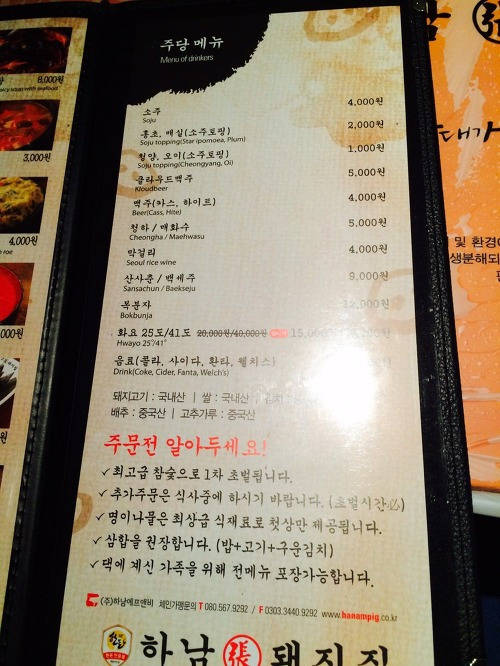 주당 메뉴
Menu of drinkers
소주 4,000원
Soju
홍초, 매실(소주토핑) 2,000원
Soju topping(Star ipomoea, Plum)
청양, 오이(소주토핑) 1,000원
Soju topping(Cheongyang, Oi)
클라우드맥주 5,000원
Kloudbeer
맥주(카스, 하이트) 4,000원
Beer(Cass, Hite)
청하 / 매화수 5,000원
Cheongha / Maehwasu
막걸리 4,000원
Seoul rice wine
산사춘 / 백세주 9,000원
Sansachun / Baekseju
복분자 12,000원
Bokbunja
화요 25도/41도 20,000원/40,000원
Hwayo 25˚/41˚
음료(콜라, 사이다, 환타, 웰치스)
Drink(Coke, Cider, Fanta, Welch's)
돼지고기 : 국내산 | 쌀 : 국내산
배추 : 중국산 | 고추가루 : 중국산
주문전 알아두세요!
✓최고급 참숯으로 1차 초벌됩니다.
✓추가주문은 식사중에 하시기 바랍니다. (초벌시간 必)
✓명이나물은 최상급 식재료로 첫상만 제공됩니다.
✓삼합을 권장합니다. (밥+고기+구운김치)
✓댁에 계신 가족을 위해 전메뉴 포장가능합니다.
(주)하남에프앤비 체인가맹문의 T 080.567.9292 / F 0303.3440.9292 www.hanampig.co.kr
하남 張 돼지집
8,000원
spicy soup with seafood
3,000원
4,000원
roe
000원
원
남 張
돼지
및 환경
생분해되